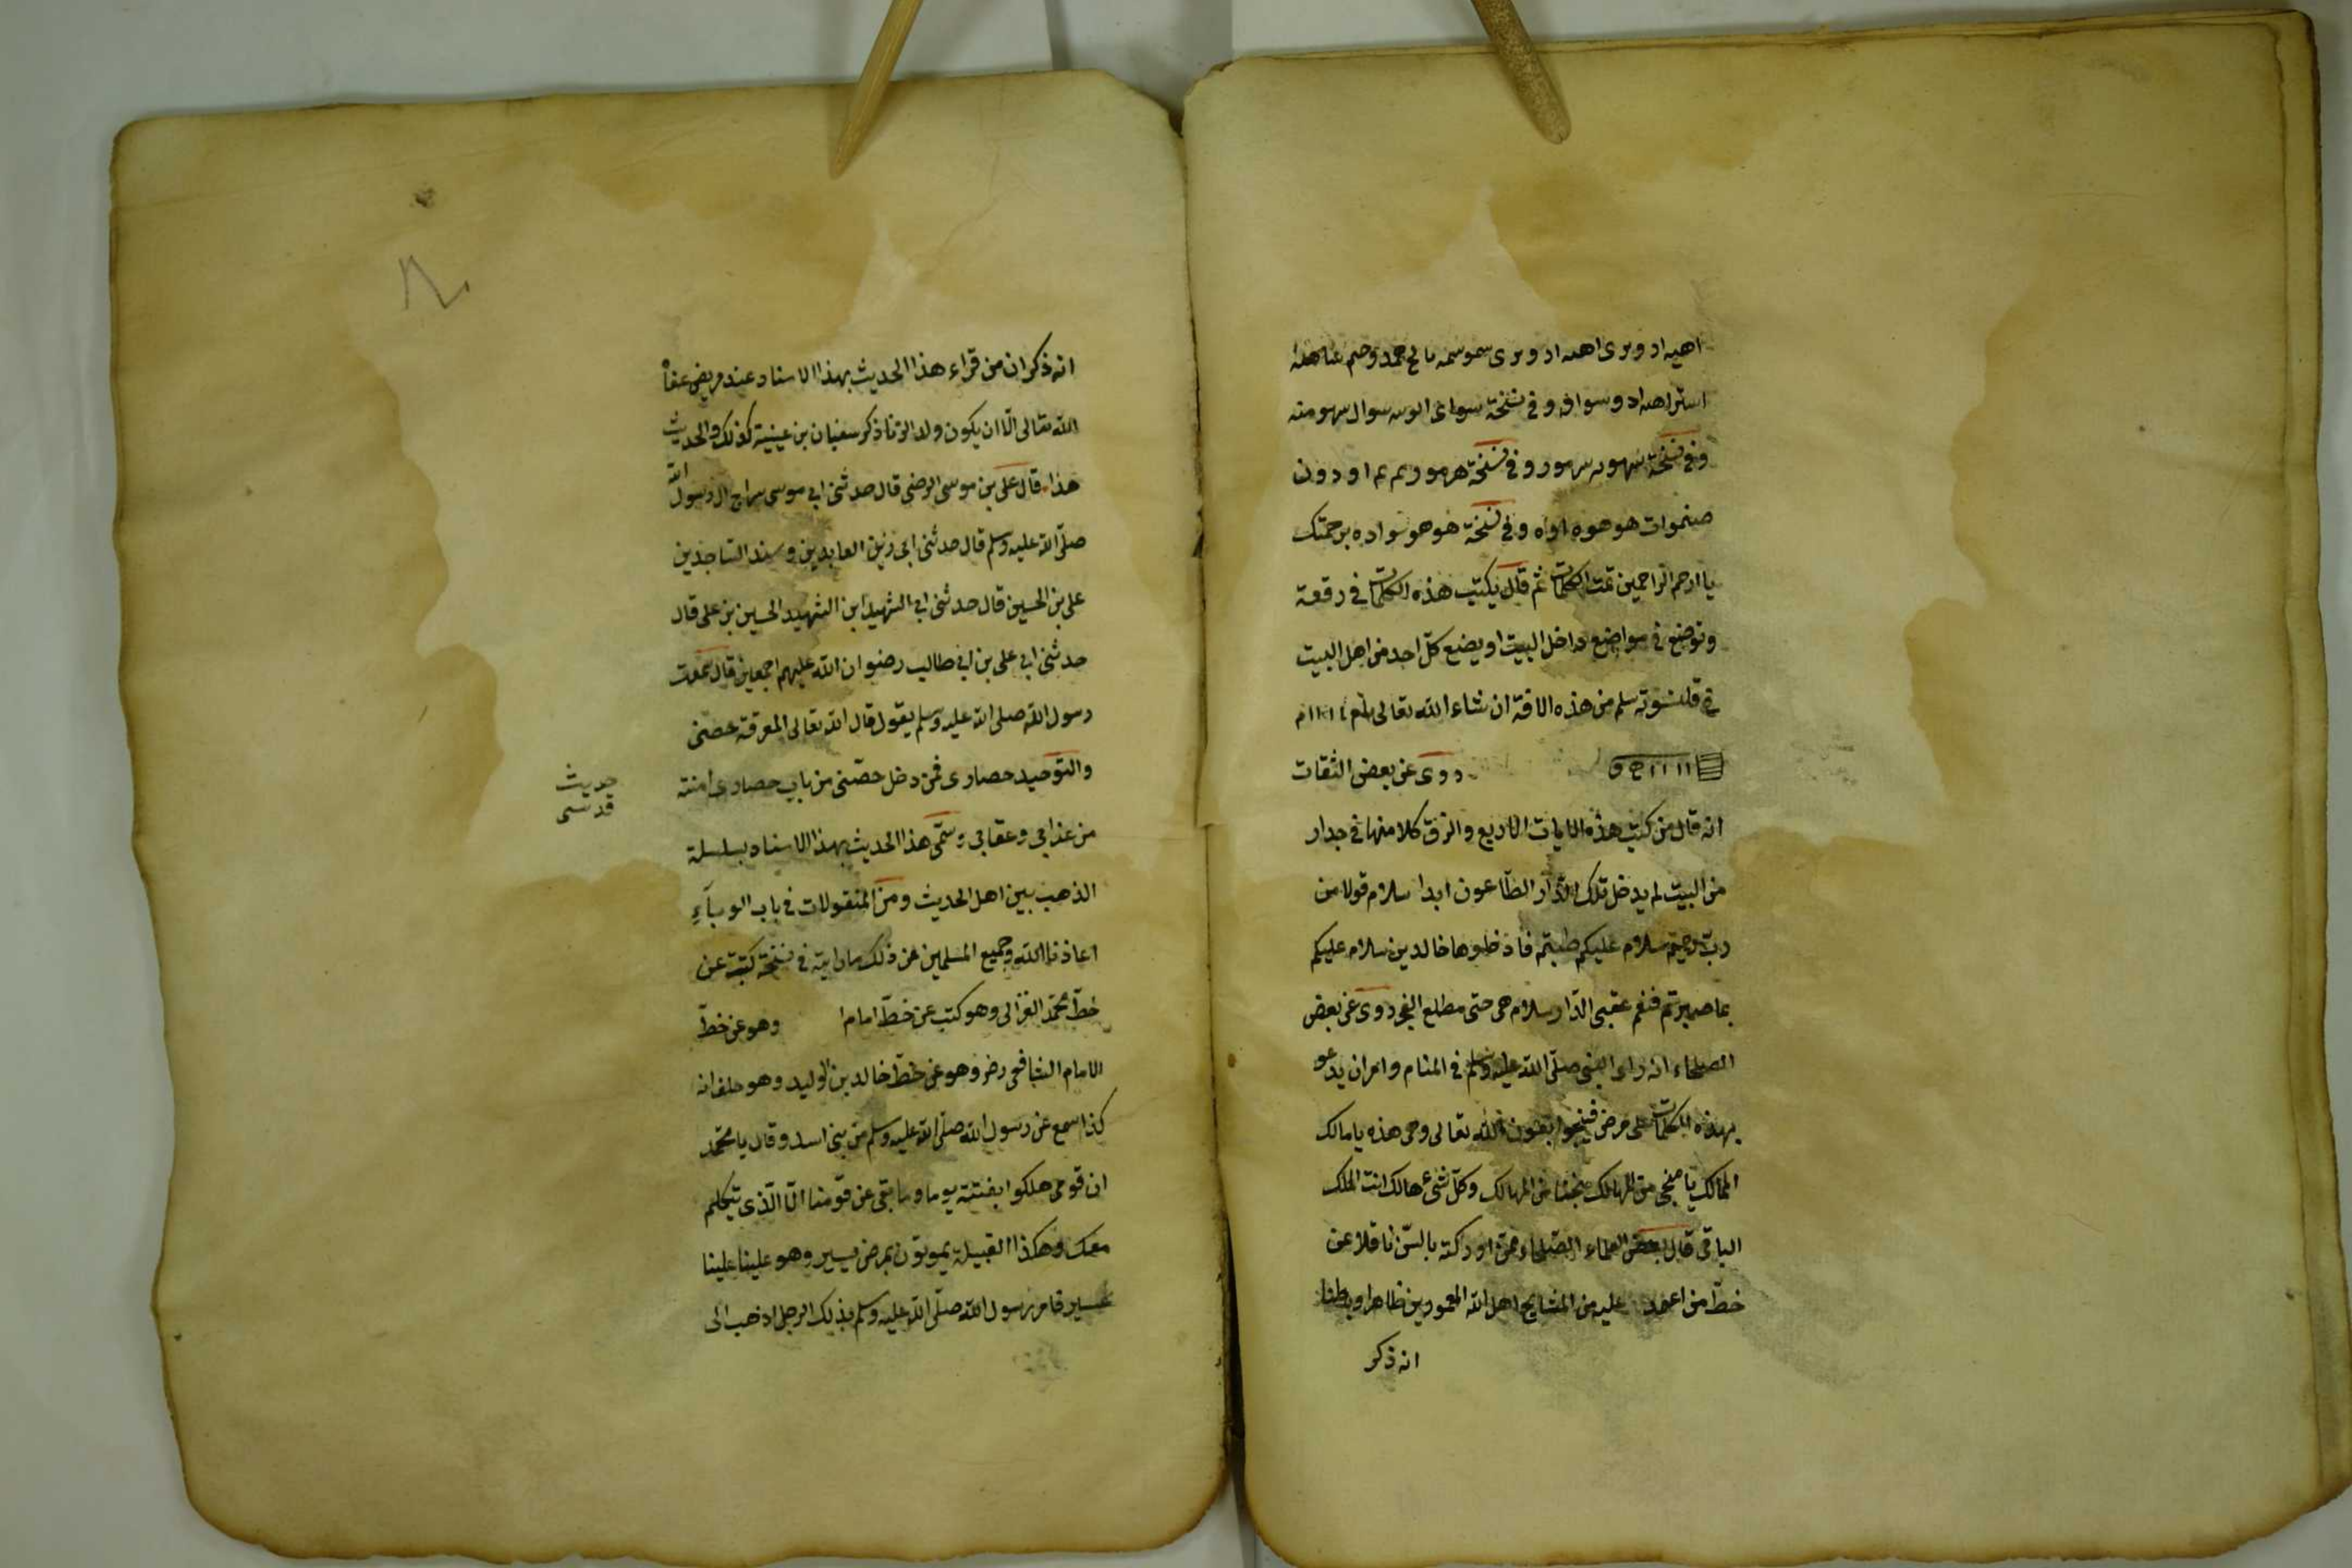 اهيه اد وبرى اهيه اد وبرى
وفى نسخة سوال
وفى نسخة وفى نسخة اودون
هو هوه اواه وفى نسخة هو هو برحمتك
يا ارحم الراحمين تمت الكلمات ثم قال يكتب هذه الكلمات فى رقعة
وتوضع فى مواضع داخل البيت او يضع كل احد من اهل البيت
فى قلنسوته سلم من هذه الافة ان شاء الله تعالى
روى عن بعض الثقات
انه قال من كتب هذه الايات الاربع والزق كلا منها فى جدار
من البيت لم يدخل تلك الدار الطاعون ابدا سلام قولا من
رب رحيم سلام عليكم طبتم فادخلوها خالدين سلام عليكم
بما صبرتم فنعم عقبى الدار سلام هى حتى مطلع الفجر روى عن بعض
الصلحاء انه راى النبى صلى الله عليه وسلم فى المنام وامر ان يدعو
بهذه الكلمات على مرض فينجوا بعون الله تعالى وهى هذه يا مالك
الممالك يا منجى من المهالك نجنا من المهالك وكل شئ هالك انت الملك
الباقى قال بعض العلماء الصلحاء ممن ادركته بالسن ناقلا عن
خط من عليه من المشايخ اهل الله المعمورين ظاهرا وباطنا
انه ذكر
انه ذكر ان من قراء هذا الحديث بهذا الاسناد عند مريض عفاه
الله تعالى الا ان يكون ولد الزنا ذكر سفيان بن عيينة كذلك والحديث
هذا قال على بن موسى الرضى قال حدثنى ابى موسى سراج ال رسول الله
صلى الله عليه وسلم قال حدثنى ابى زين العابدين وسند الساجدين
على بن الحسين قال حدثنى ابى الشهيد ابن الشهيد الحسين بن على قال
حدثنى ابى على بن ابى طالب رضوان الله عليهم اجمعين قال سمعت
رسول الله صلى الله عليه وسلم يقول قال الله تعالى المعرفة حصنى
والتوحيد حصارى فمن دخل حصنى من باب حصارى امنته
حديث
قدسى
من عذابى وعقابى وسمى هذا الحديث بهذا الاسناد بسلسلة
الذهب بين اهل الحديث ومن المنقولات فى باب الوباء
اعاذنا الله وجميع المسلمين عن ذلك ما رايته فى نسخة كتبت عن
خط محمد الغزالى وهو كتب عن خط امام وهو عن خط
الامام الشافعى رضى وهو عن خط خالد بن الوليد وهو حلف انه
كذا سمع عن رسول الله صلى الله عليه وسلم من بنى اسد وقال يا محمد
ان قومى هلكوا بغتة يوما وما بقى عن قومنا الا الذى تتكلم
معك وهكذا القبيلة يموتون بمرض يسير وهو علينا علينا
عسير فامر رسول الله صلى الله عليه وسلم بذلك الرجل اذهب الى